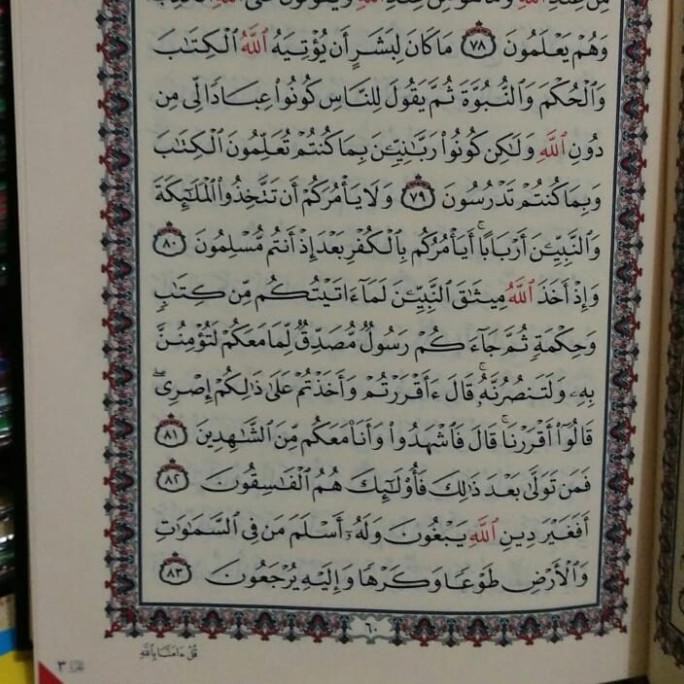 مِنْ عِندِ ٱللَّهِ وَمَا هُوَ مِنْ عِندِ ٱللَّهِ وَيَقُولُونَ عَلَى ٱللَّهِ ٱلْكَذِبَ
وَهُمْ يَعْلَمُونَ ٧٨ مَا كَانَ لِبَشَرٍ أَن يُؤْتِيَهُ ٱللَّهُ ٱلْكِتَٰبَ
وَٱلْحُكْمَ وَٱلنُّبُوَّةَ ثُمَّ يَقُولَ لِلنَّاسِ كُونُوا۟ عِبَادًا لِّى مِن
دُونِ ٱللَّهِ وَلَٰكِن كُونُوا۟ رَبَّٰنِيِّۦنَ بِمَا كُنتُمْ تُعَلِّمُونَ ٱلْكِتَٰبَ
وَبِمَا كُنتُمْ تَدْرُسُونَ ٧٩ وَلَا يَأْمُرَكُمْ أَن تَتَّخِذُوا۟ ٱلْمَلَٰٓئِكَةَ
وَٱلنَّبِيِّۦنَ أَرْبَابًا ۗ أَيَأْمُرُكُم بِٱلْكُفْرِ بَعْدَ إِذْ أَنتُم مُّسْلِمُونَ ٨٠
وَإِذْ أَخَذَ ٱللَّهُ مِيثَٰقَ ٱلنَّبِيِّۦنَ لَمَآ ءَاتَيْتُكُم مِّن كِتَٰبٍ
وَحِكْمَةٍ ثُمَّ جَآءَكُمْ رَسُولٌ مُّصَدِّقٌ لِّمَا مَعَكُمْ لَتُؤْمِنُنَّ
بِهِۦ وَلَتَنصُرُنَّهُۥ ۚ قَالَ ءَأَقْرَرْتُمْ وَأَخَذْتُمْ عَلَىٰ ذَٰلِكُمْ إِصْرِى ۖ
قَالُوٓا۟ أَقْرَرْنَا ۚ قَالَ فَٱشْهَدُوا۟ وَأَنَا۠ مَعَكُم مِّنَ ٱلشَّٰهِدِينَ ٨١
فَمَن تَوَلَّىٰ بَعْدَ ذَٰلِكَ فَأُو۟لَٰٓئِكَ هُمُ ٱلْفَٰسِقُونَ ٨٢
أَفَغَيْرَ دِينِ ٱللَّهِ يَبْغُونَ وَلَهُۥٓ أَسْلَمَ مَن فِى ٱلسَّمَٰوَٰتِ
وَٱلْأَرْضِ طَوْعًا وَكَرْهًا وَإِلَيْهِ يُرْجَعُونَ ٨٣
٦٠
قُلْ ءَامَنَّا بِٱللَّهِ
٣